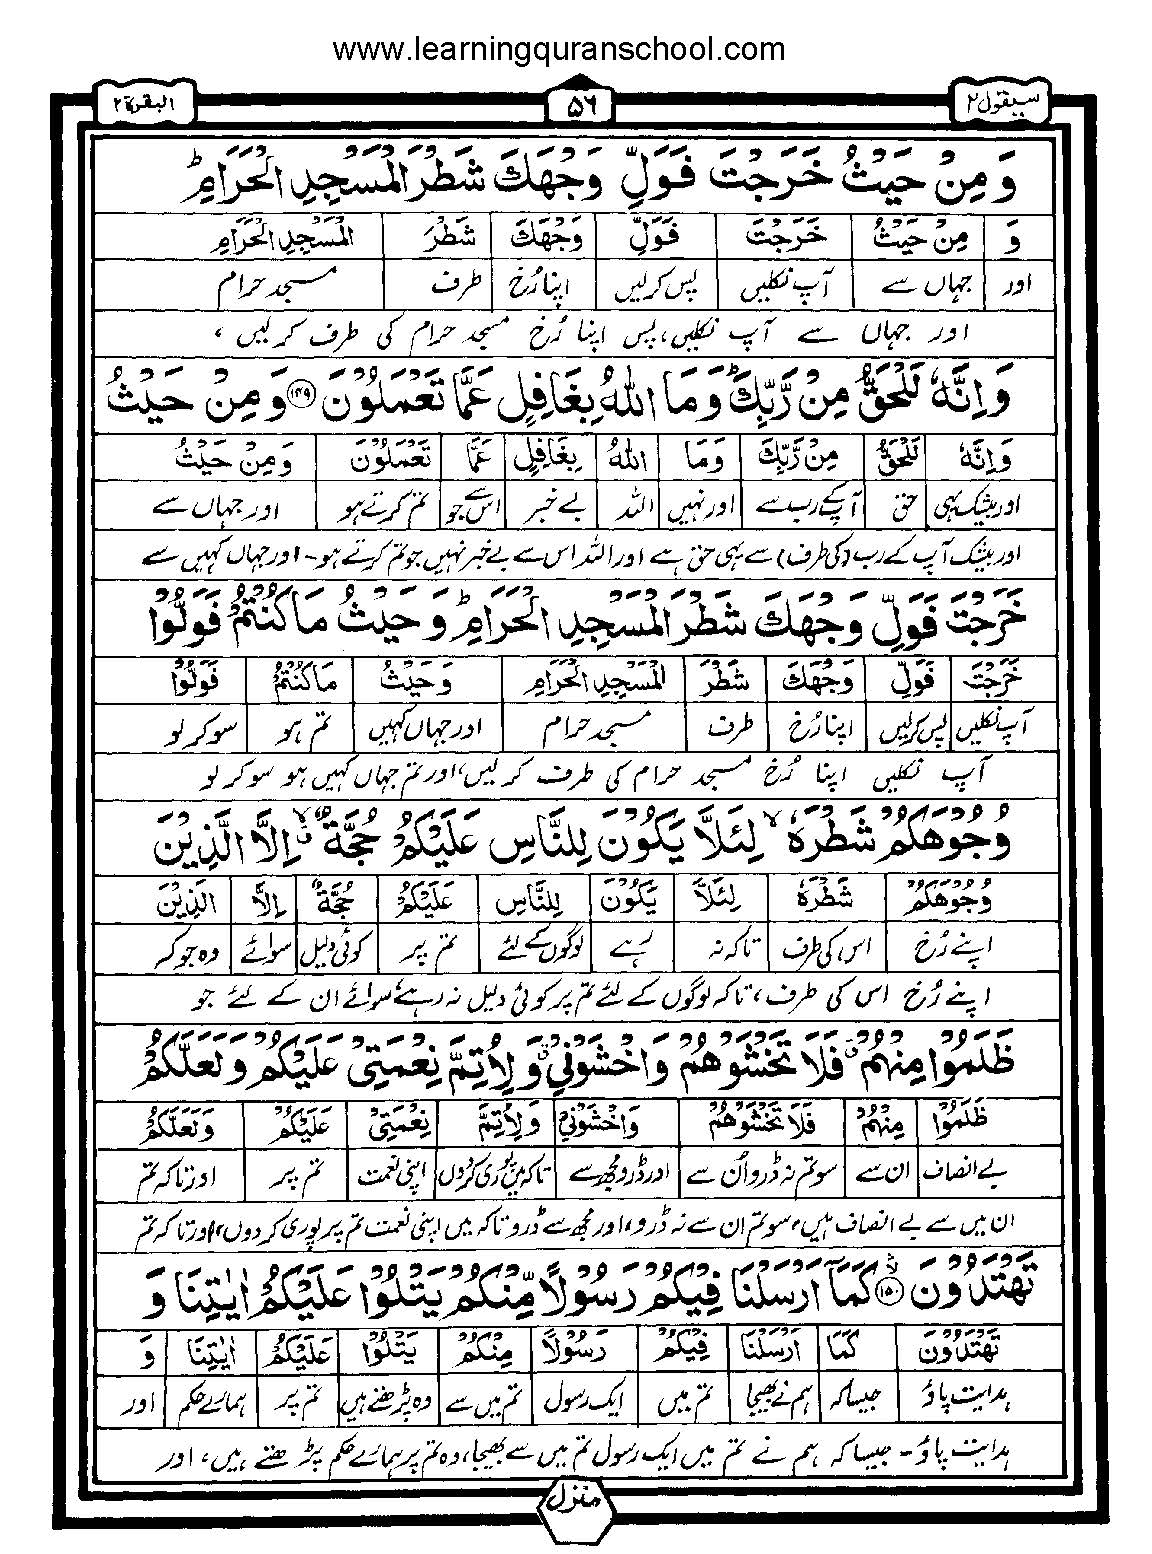 www.learningquranschool.com
سيقول ٢ ۵۶ البقرة ٢
وَ مِنْ حَيْثُ خَرَجْتَ فَوَلِّ وَجْهَكَ شَطْرَ الْمَسْجِدِ الْحَرَامِ ؕ
وَ مِنْ حَيْثُ خَرَجْتَ فَوَلِّ وَجْهَكَ شَطْرَ الْمَسْجِدِ الْحَرَامِ
اور جہاں سے آپ نکلیں پس کرلیں اپنا رُخ طرف مسجد حرام
اور جہاں سے آپ نکلیں، پس اپنا رُخ مسجد حرام کی طرف کرلیں،
وَاِنَّهٗ لَلْحَقُّ مِنْ رَّبِّكَ ؕ وَمَا اللّٰهُ بِغَافِلٍ عَمَّا تَعْمَلُوْنَ ﴿۱۴۹﴾ وَ مِنْ حَيْثُ
وَاِنَّهٗ لَلْحَقُّ مِنْ رَّبِّكَ وَمَا اللّٰهُ بِغَافِلٍ عَمَّا تَعْمَلُوْنَ وَ مِنْ حَيْثُ
اور بیشک یہی حق آپکے رب سے اور نہیں اللہ بے خبر اس سے جو تم کرتے ہو اور جہاں سے
اور بیشک آپ کے رب (کی طرف) سے یہی حق ہے اور اللہ اس سے بے خبر نہیں جو تم کرتے ہو۔ اور جہاں کہیں سے
خَرَجْتَ فَوَلِّ وَجْهَكَ شَطْرَ الْمَسْجِدِ الْحَرَامِ ؕ وَ حَيْثُ مَا كُنْتُمْ فَوَلُّوْا
خَرَجْتَ فَوَلِّ وَجْهَكَ شَطْرَ الْمَسْجِدِ الْحَرَامِ وَ حَيْثُ مَا كُنْتُمْ فَوَلُّوْا
آپ نکلیں پس کرلیں اپنا رُخ طرف مسجد حرام اور جہاں کہیں تم ہو سو کر لو
آپ نکلیں اپنا رُخ مسجد حرام کی طرف کرلیں، اور تم جہاں کہیں ہو سو کر لو
وُجُوْهَكُمْ شَطْرَهٗ ۙ لِئَلَّا يَكُوْنَ لِلنَّاسِ عَلَيْكُمْ حُجَّةٌ ۙ اِلَّا الَّذِيْنَ
وُجُوْهَكُمْ شَطْرَهٗ لِئَلَّا يَكُوْنَ لِلنَّاسِ عَلَيْكُمْ حُجَّةٌ اِلَّا الَّذِيْنَ
اپنے رُخ اس کی طرف تاکہ نہ رہے لوگوں کے لئے تم پر کوئی دلیل سوائے وہ جو کہ
اپنے رُخ اس کی طرف، تاکہ لوگوں کے لئے تم پر کوئی دلیل نہ رہے، سوائے ان کے لئے جو
ظَلَمُوْا مِنْهُمْ ۗ فَلَا تَخْشَوْهُمْ وَاخْشَوْنِيْ ۗ وَلِاُتِمَّ نِعْمَتِيْ عَلَيْكُمْ وَلَعَلَّكُمْ
ظَلَمُوْا مِنْهُمْ فَلَا تَخْشَوْهُمْ وَاخْشَوْنِيْ وَلِاُتِمَّ نِعْمَتِيْ عَلَيْكُمْ وَلَعَلَّكُمْ
بے انصاف ان سے سو تم نہ ڈرو اُن سے اور ڈرو مجھ سے تاکہ میں پوری کردوں اپنی نعمت تم پر اور تاکہ تم
ان میں سے بے انصاف ہیں، سو تم ان سے نہ ڈرو، اور مجھ سے ڈرو تاکہ میں اپنی نعمت تم پر پوری کردوں، اور تاکہ تم
تَهْتَدُوْنَ ﴿۱۵۰﴾ كَمَآ اَرْسَلْنَا فِيْكُمْ رَسُوْلًا مِّنْكُمْ يَتْلُوْا عَلَيْكُمْ اٰيٰتِنَا وَ
تَهْتَدُوْنَ كَمَا اَرْسَلْنَا فِيْكُمْ رَسُوْلًا مِنْكُمْ يَتْلُوْا عَلَيْكُمْ اٰيٰتِنَا وَ
ہدایت پاؤ جیسا کہ ہم نے بھیجا تم میں ایک رسول تم میں سے وہ پڑھتے ہیں تم پر ہمارے حکم اور
ہدایت پاؤ۔ جیسا کہ ہم نے تم میں ایک رسول تم میں سے بھیجا، وہ تم پر ہمارے حکم پڑھتے ہیں، اور
منزل